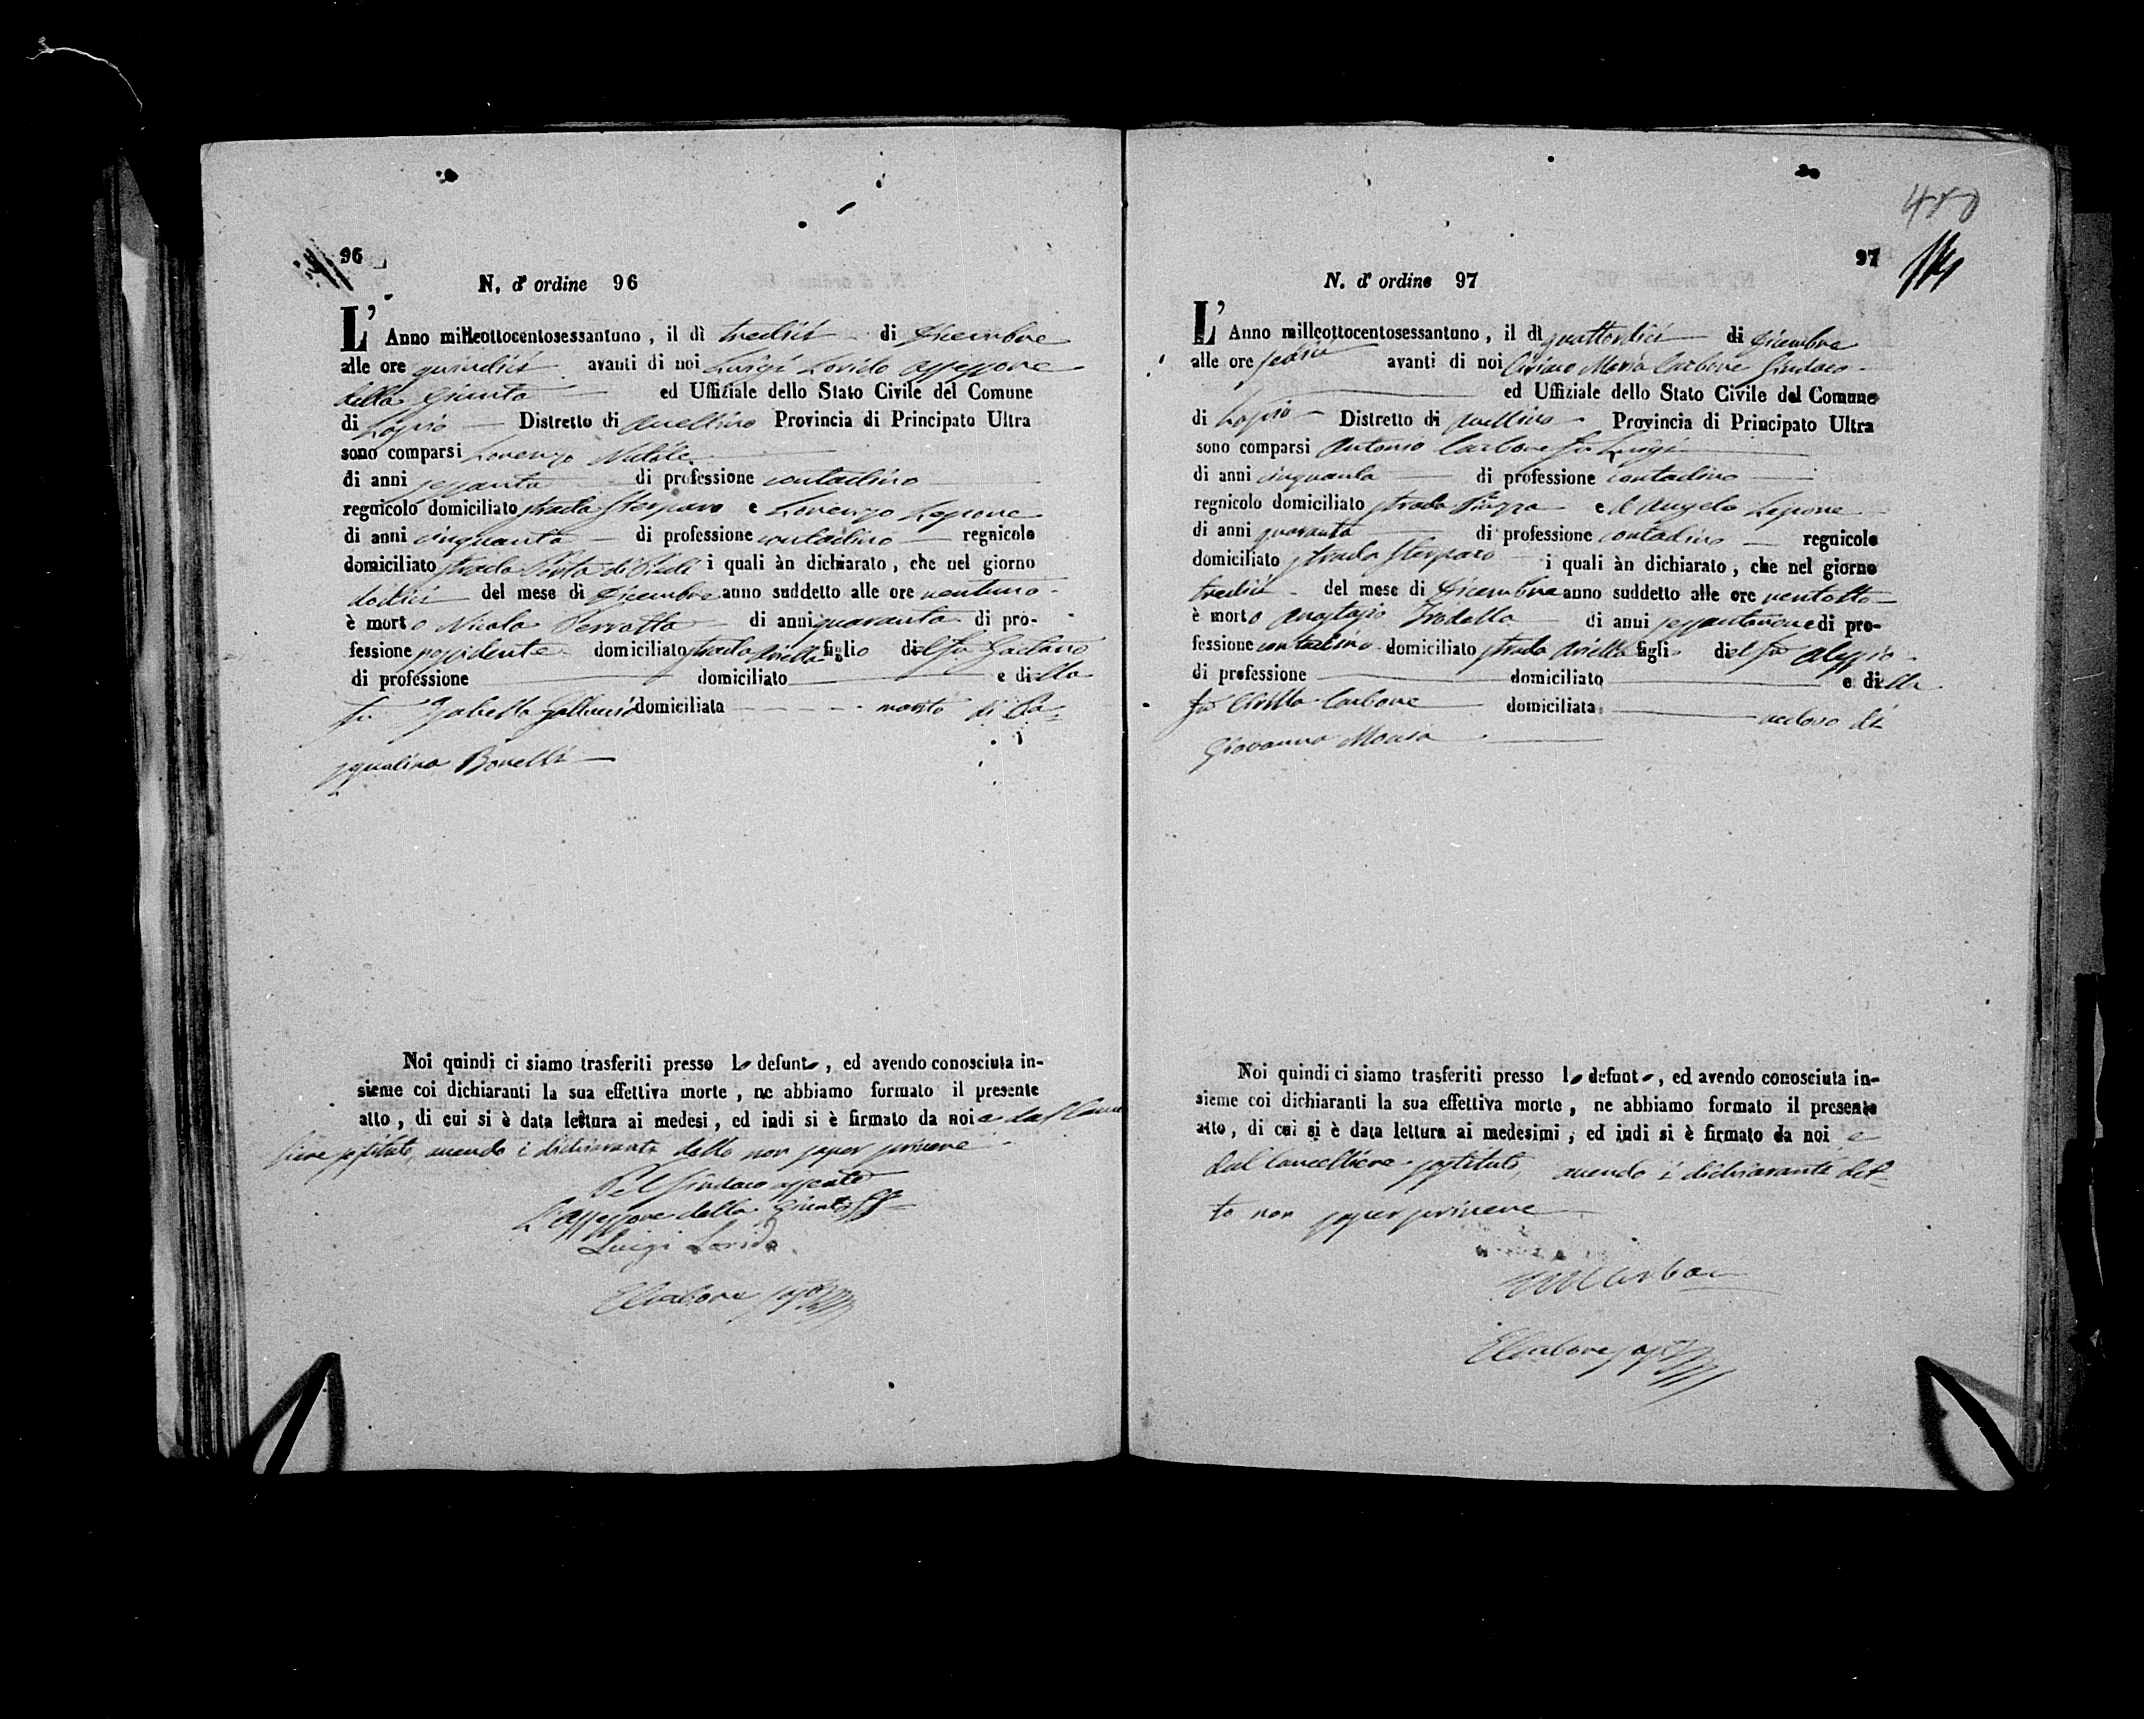 96
N. d' ordine 96
L' Anno millcottocentosessantuno, il dì tredici di Dicembre
alle ore quindici avanti di noi Luigi Lorido assessore
della Giunta ed Uffiziale dello Stato Civile del Comune
di Lapio Distretto di Avellino Provincia di Principato Ultra
sono comparsi Lorenzo
di anni sessanta di professione contadino
regnicolo domiciliato strada e Lorenzo Lepore
di anni cinquanta di professione contadino regnicolo
domiciliato strada i quali àn dichiarato, che nel giorno
dodici del mese di Dicembre anno suddetto alle ore ventuno
è morto Nicola Perrotta di anni quaranta di pro-
fessione possidente domiciliato strada figlio del fu Gaetano
di professione domiciliato e della
fu domiciliata marito di Pa-
squalina Bonelli
Noi quindi ci siamo trasferiti presso lo defunto, ed avendo conosciuta in-
sieme coi dichiaranti la sua effettiva morte, ne abbiamo formato il presente
atto, di cui si è data lettura ai medesi, ed indi si è firmato da noi e dal Cancel
liere sostituto, avendo i dichiaranti detto non saper scrivere
Pel Sindaco assente
L'assessore della Giunta
Luigi Lorido
480
97
N. d' ordine 97
L' Anno millcottocentosessantuno, il dì quattordici di Dicembre
alle ore sedici avanti di noi Ciriaco Maria Carbone Sindaco
ed Uffiziale dello Stato Civile del Comune
di Lapio Distretto di Avellino Provincia di Principato Ultra
sono comparsi Antonio Carbone fu Luigi
di anni cinquanta di professione contadino
regnicolo domiciliato strada Piazza e d'Angelo Lepore
di anni quaranta di professione contadino regnicolo
domiciliato strada i quali àn dichiarato, che nel giorno
tredici del mese di Dicembre anno suddetto alle ore ventotto
è morto Anastasio Trodella di anni sessantanove di pro-
fessione contadino domiciliato strada figlio del fu Alessio
di professione domiciliato e della
fu Carbone domiciliata vedovo di
Giovanna
Noi quindi ci siamo trasferiti presso lo defunto, ed avendo conosciuta in-
sieme coi dichiaranti la sua effettiva morte, ne abbiamo formato il presente
atto, di cui si è data lettura ai medesimi, ed indi si è firmato da noi e
dal Cancelliere sostituto, avendo i dichiaranti det-
to non saper scrivere